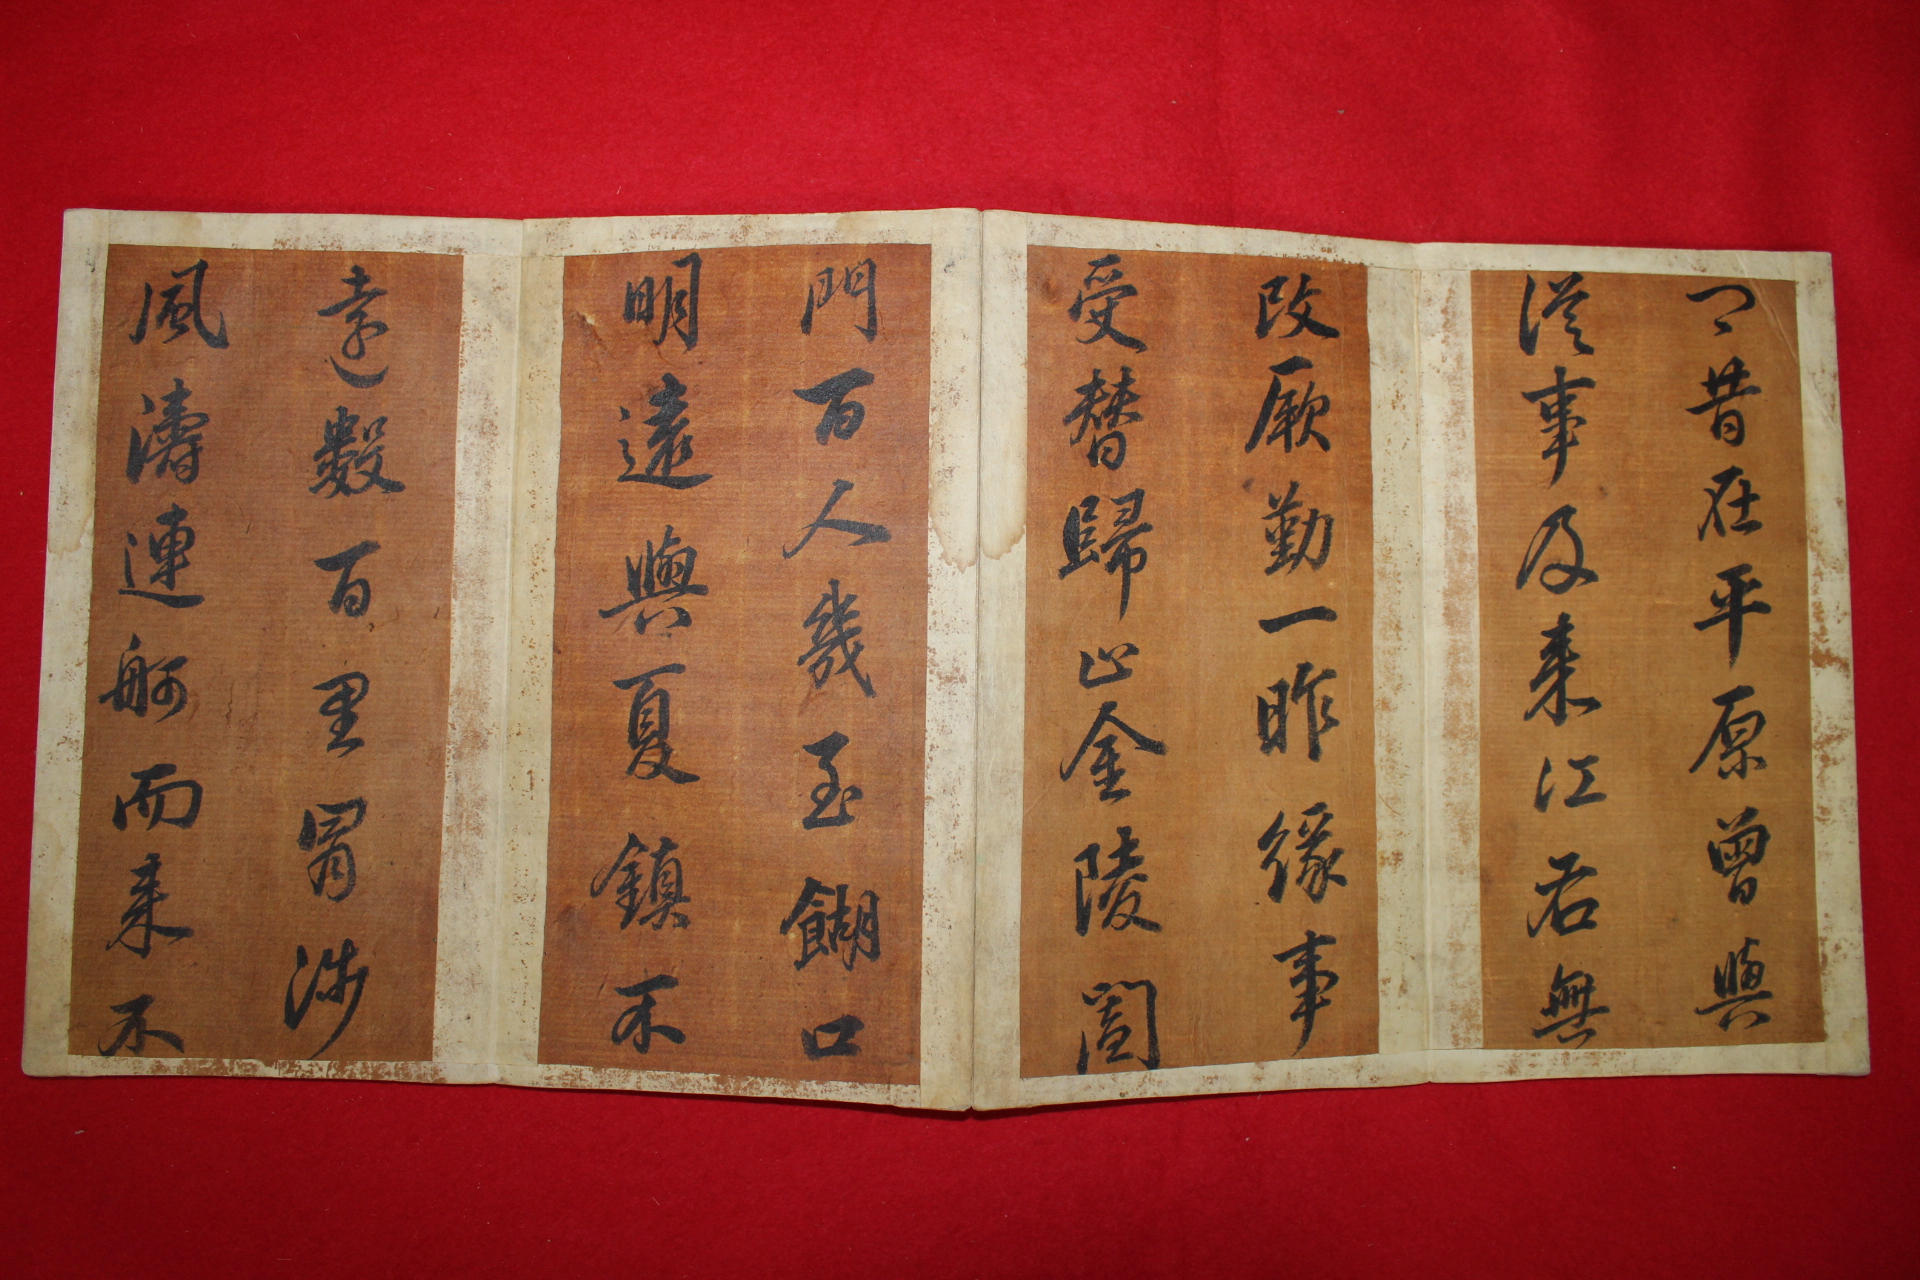 昔在平原曾與
從事及来江右無
改厥勤一昨緣事
受替歸止金陵闔
門百人幾至餬口
明遠與夏鎮不
遠數百里冒涉
風濤連舸而来不